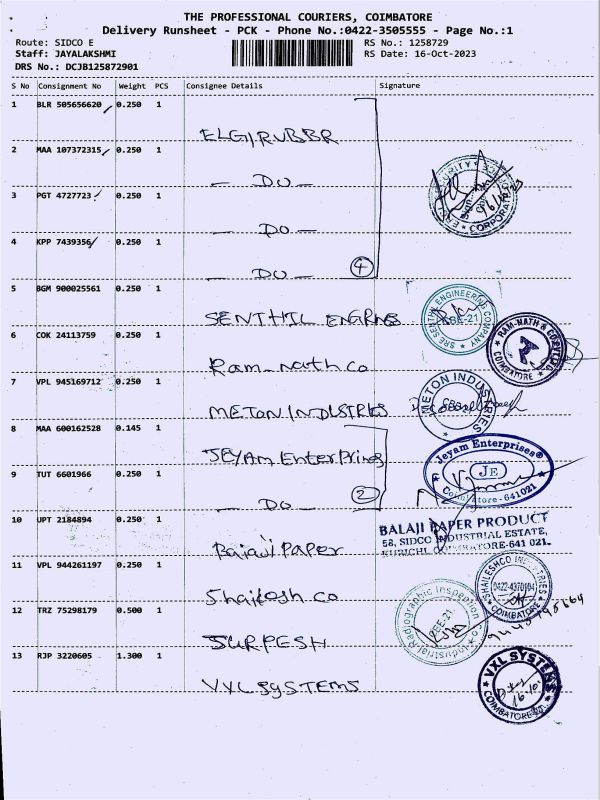 THE PROFESSIONAL COURIERS, COIMBATORE
Delivery Runsheet - PCK - Phone No.:0422-3505555 - Page No.:1
Route: SIDCO E RS No.: 1258729
Staff: JAYALAKSHMI RS Date: 16-Oct-2023
DRS No.: DCJB125872901
S No Consignment No Weight PCS Consignee Details Signature
1 BLR 505656620 0.250 1
ELGI RUBBR
2 MAA 107372315 0.250 1
— DO —
3 PGT 4727723 0.250 1
— DO —
4 KPP 7439356 0.250 1
— DO — 4
SECURITY
CORPORATE
5 BGM 900025561 0.250 1
SENTHIL ENGRNES
SRE SENTHIL ENGINEERING COMPANY
CBE-21
6 COK 24113759 0.250 1
Ram-nath co
RAM-NATH & CO
COIMBATORE
7 VPL 945169712 0.250 1
METON INDUSTRIES
METON INDUSTRIES
8 MAA 600162528 0.145 1
JEYAM Enterprines
Jeyam Enterprises
JE
Coimbatore-641021
9 TUT 6601966 0.250 1
— DO — 2
10 UPT 2184894 0.250 1
Balaji Paper
BALAJI PAPER PRODUCT
58, SIDCO INDUSTRIAL ESTATE,
KURICHI, COIMBATORE-641 021.
11 VPL 944261197 0.250 1
Shailesh co
SHAILESHCO INDUSTRIES
0422-4370104
COIMBATORE
12 TRZ 75298179 0.500 1
SURPESH
Industrial Radiographic Inspection Co
CBE-21
13 RJP 3220605 1.300 1
VXL SYSTEMS
VXL SYSTEMS
16.10.
COIMBATORE